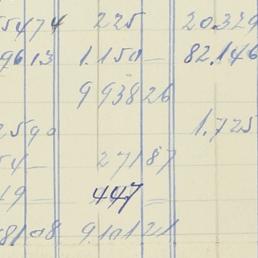 5474 225 20.329
9613 1.150 — 82.146
993826
2590 1.725
54 — 27187
19 — 447 —
8108 9.101.21